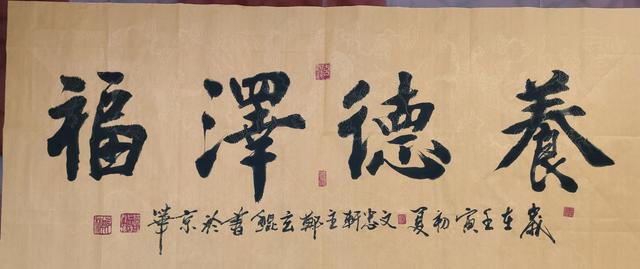 養德澤福
歲在壬寅初夏文忠軒主鄭玄鯤書於京華